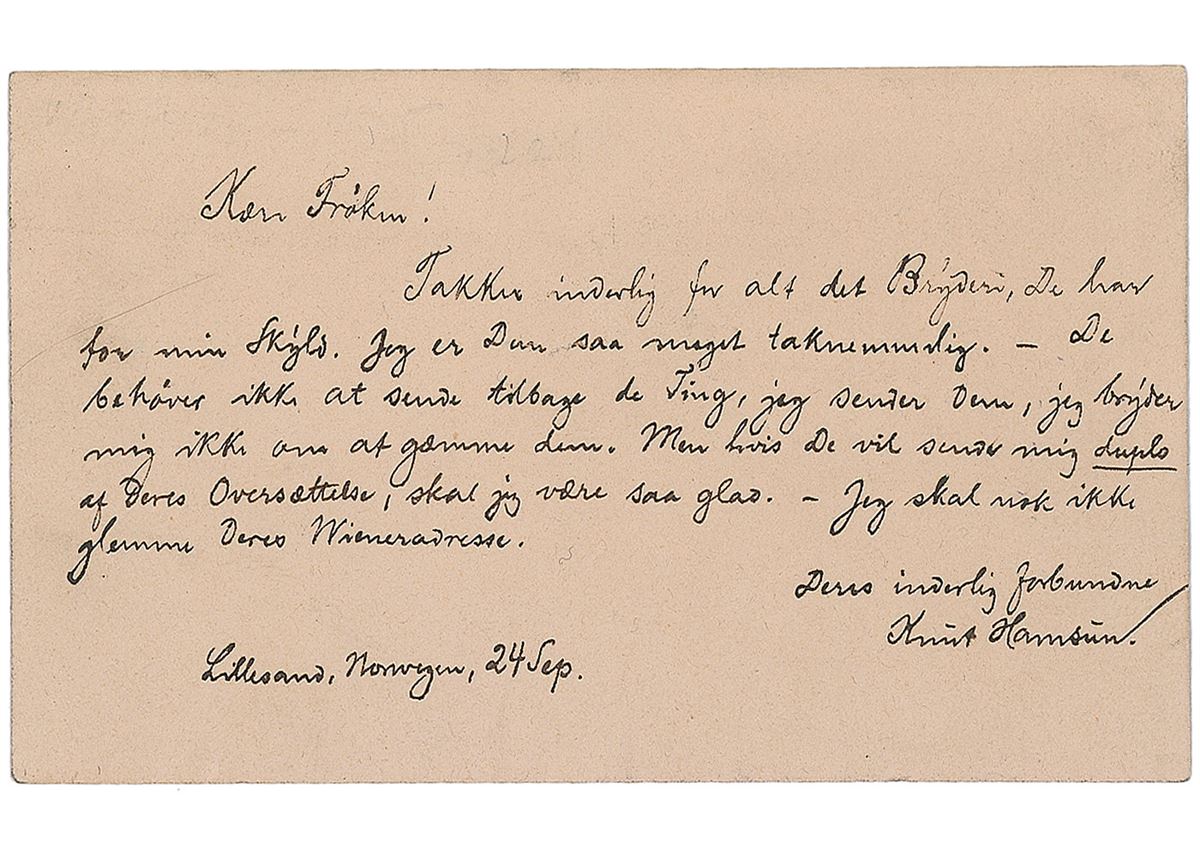 Kære Frøken!
Takker inderlig for alt det Bryderi, De har
for min Skyld. Jeg er Dem saa meget taknemmelig. — De
behøver ikke at sende tilbage de Ting, jeg sender Dem, jeg bryder
mig ikke om at gæmme dem. Men hvis De vil sende mig duplo
af Deres Oversættelse, skal jeg være saa glad. — Jeg skal nok ikke
glemme Deres Wieneradresse.
Deres inderlig forbundne
Knut Hamsun.
Lillesand, Norwegen, 24 Sep.